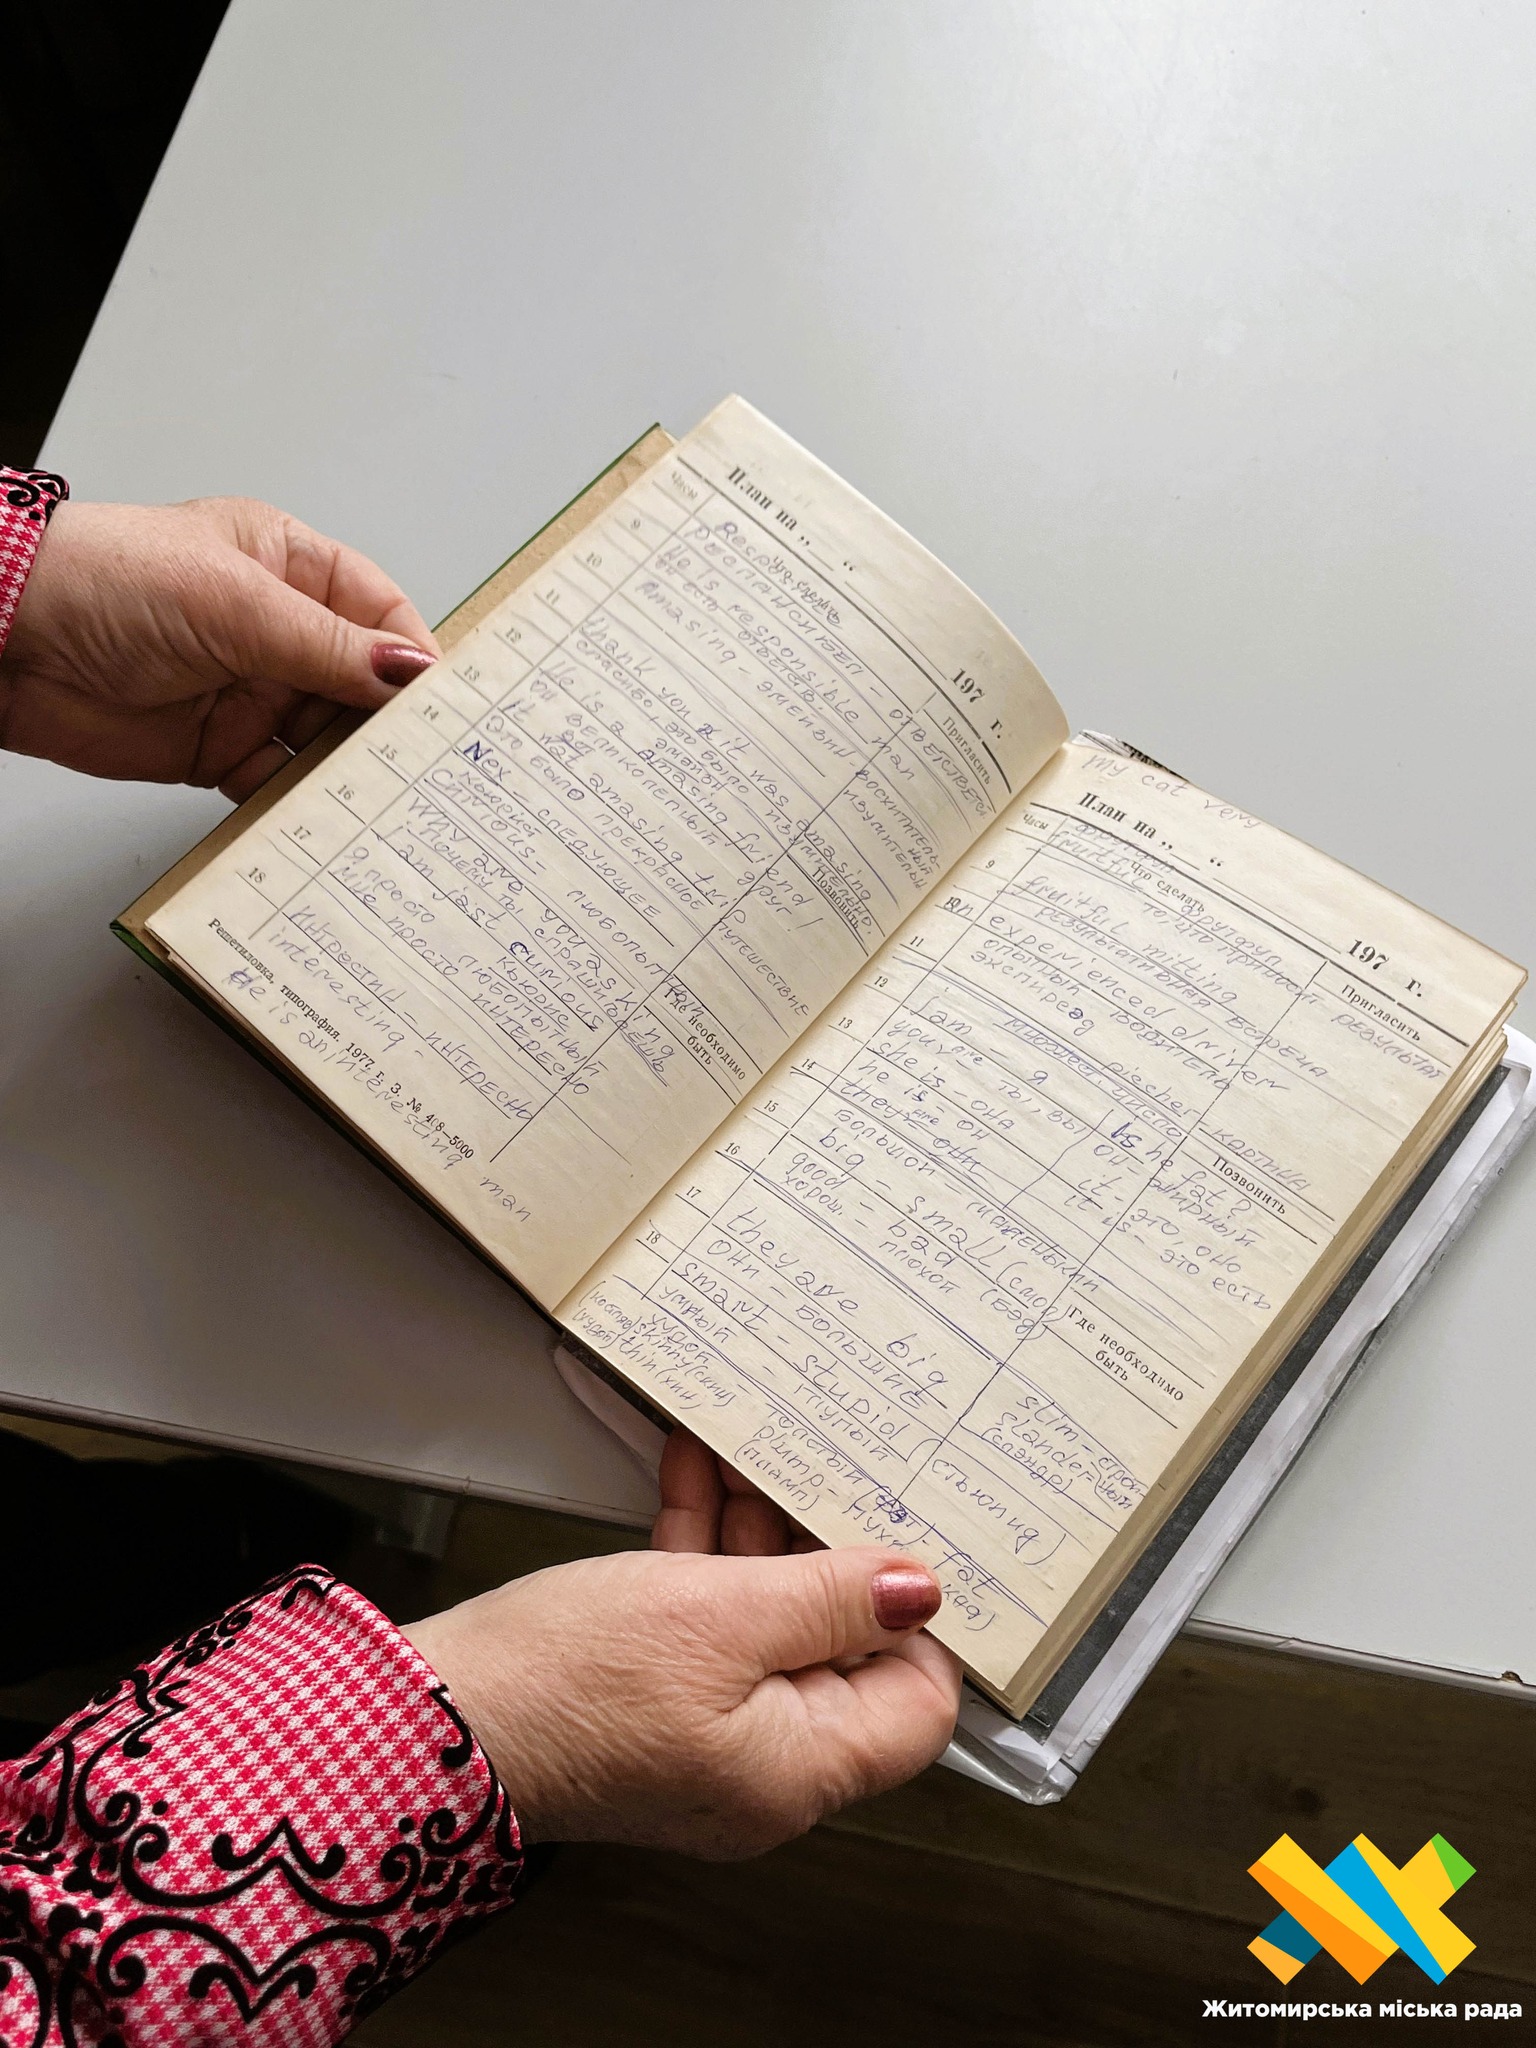 План на „ “
197 г.
Часы
Что сделать
Пригласить
9
10
11
12
13
14
15
16
17
18
Позвонить
Где необходимо
быть
Responsible
респансибел - ответствен
He is responsible man
ответств.
Amasing - эмейзин - восхититель-
ный
изумительн
thank you it was amasing
спасибо, это было изумительно.
He is a amasing friend
он великолепный друг!
it wat amasing trip
это было прекрасное путешествие
Nex - следующее
кьюрист
Curious - любопытный
Why are you asking
Почему ты спрашиваешь
I am jast curious
я просто любопытный
мне просто интересно
Интрестин - интересно
interesting -
Решетиловка, типография. 1977 г. З. № 408—5000
He is an interesting man
my cat very
План на „ “
197 г.
Часы
Что сделать
Пригласить
9
11
12
13
14
15
16
17
18
Позвонить
Где необходимо
быть
fruitful
фрутфул
то что приносит результат
fruitful mitting
результативная встреча
experienced driver
опытный водитель
I am - я
you are - ты, вы
she is - она
he is - он
they are - они
Is he fat?
он - жирный
it - это, оно
it is - это есть
большой - маленький
big - small (смол)
good - bad (бэд)
хорош. - плохой
they are big
они - большие
smart - stupid (стьюпид)
умный - глупый
худой
skinny (скин)
thin (хин)
толстый (фэт) - fat
plump -
(пламп)
slim - строй-
ный
slander -
(слэндр)
Житомирська міська рада